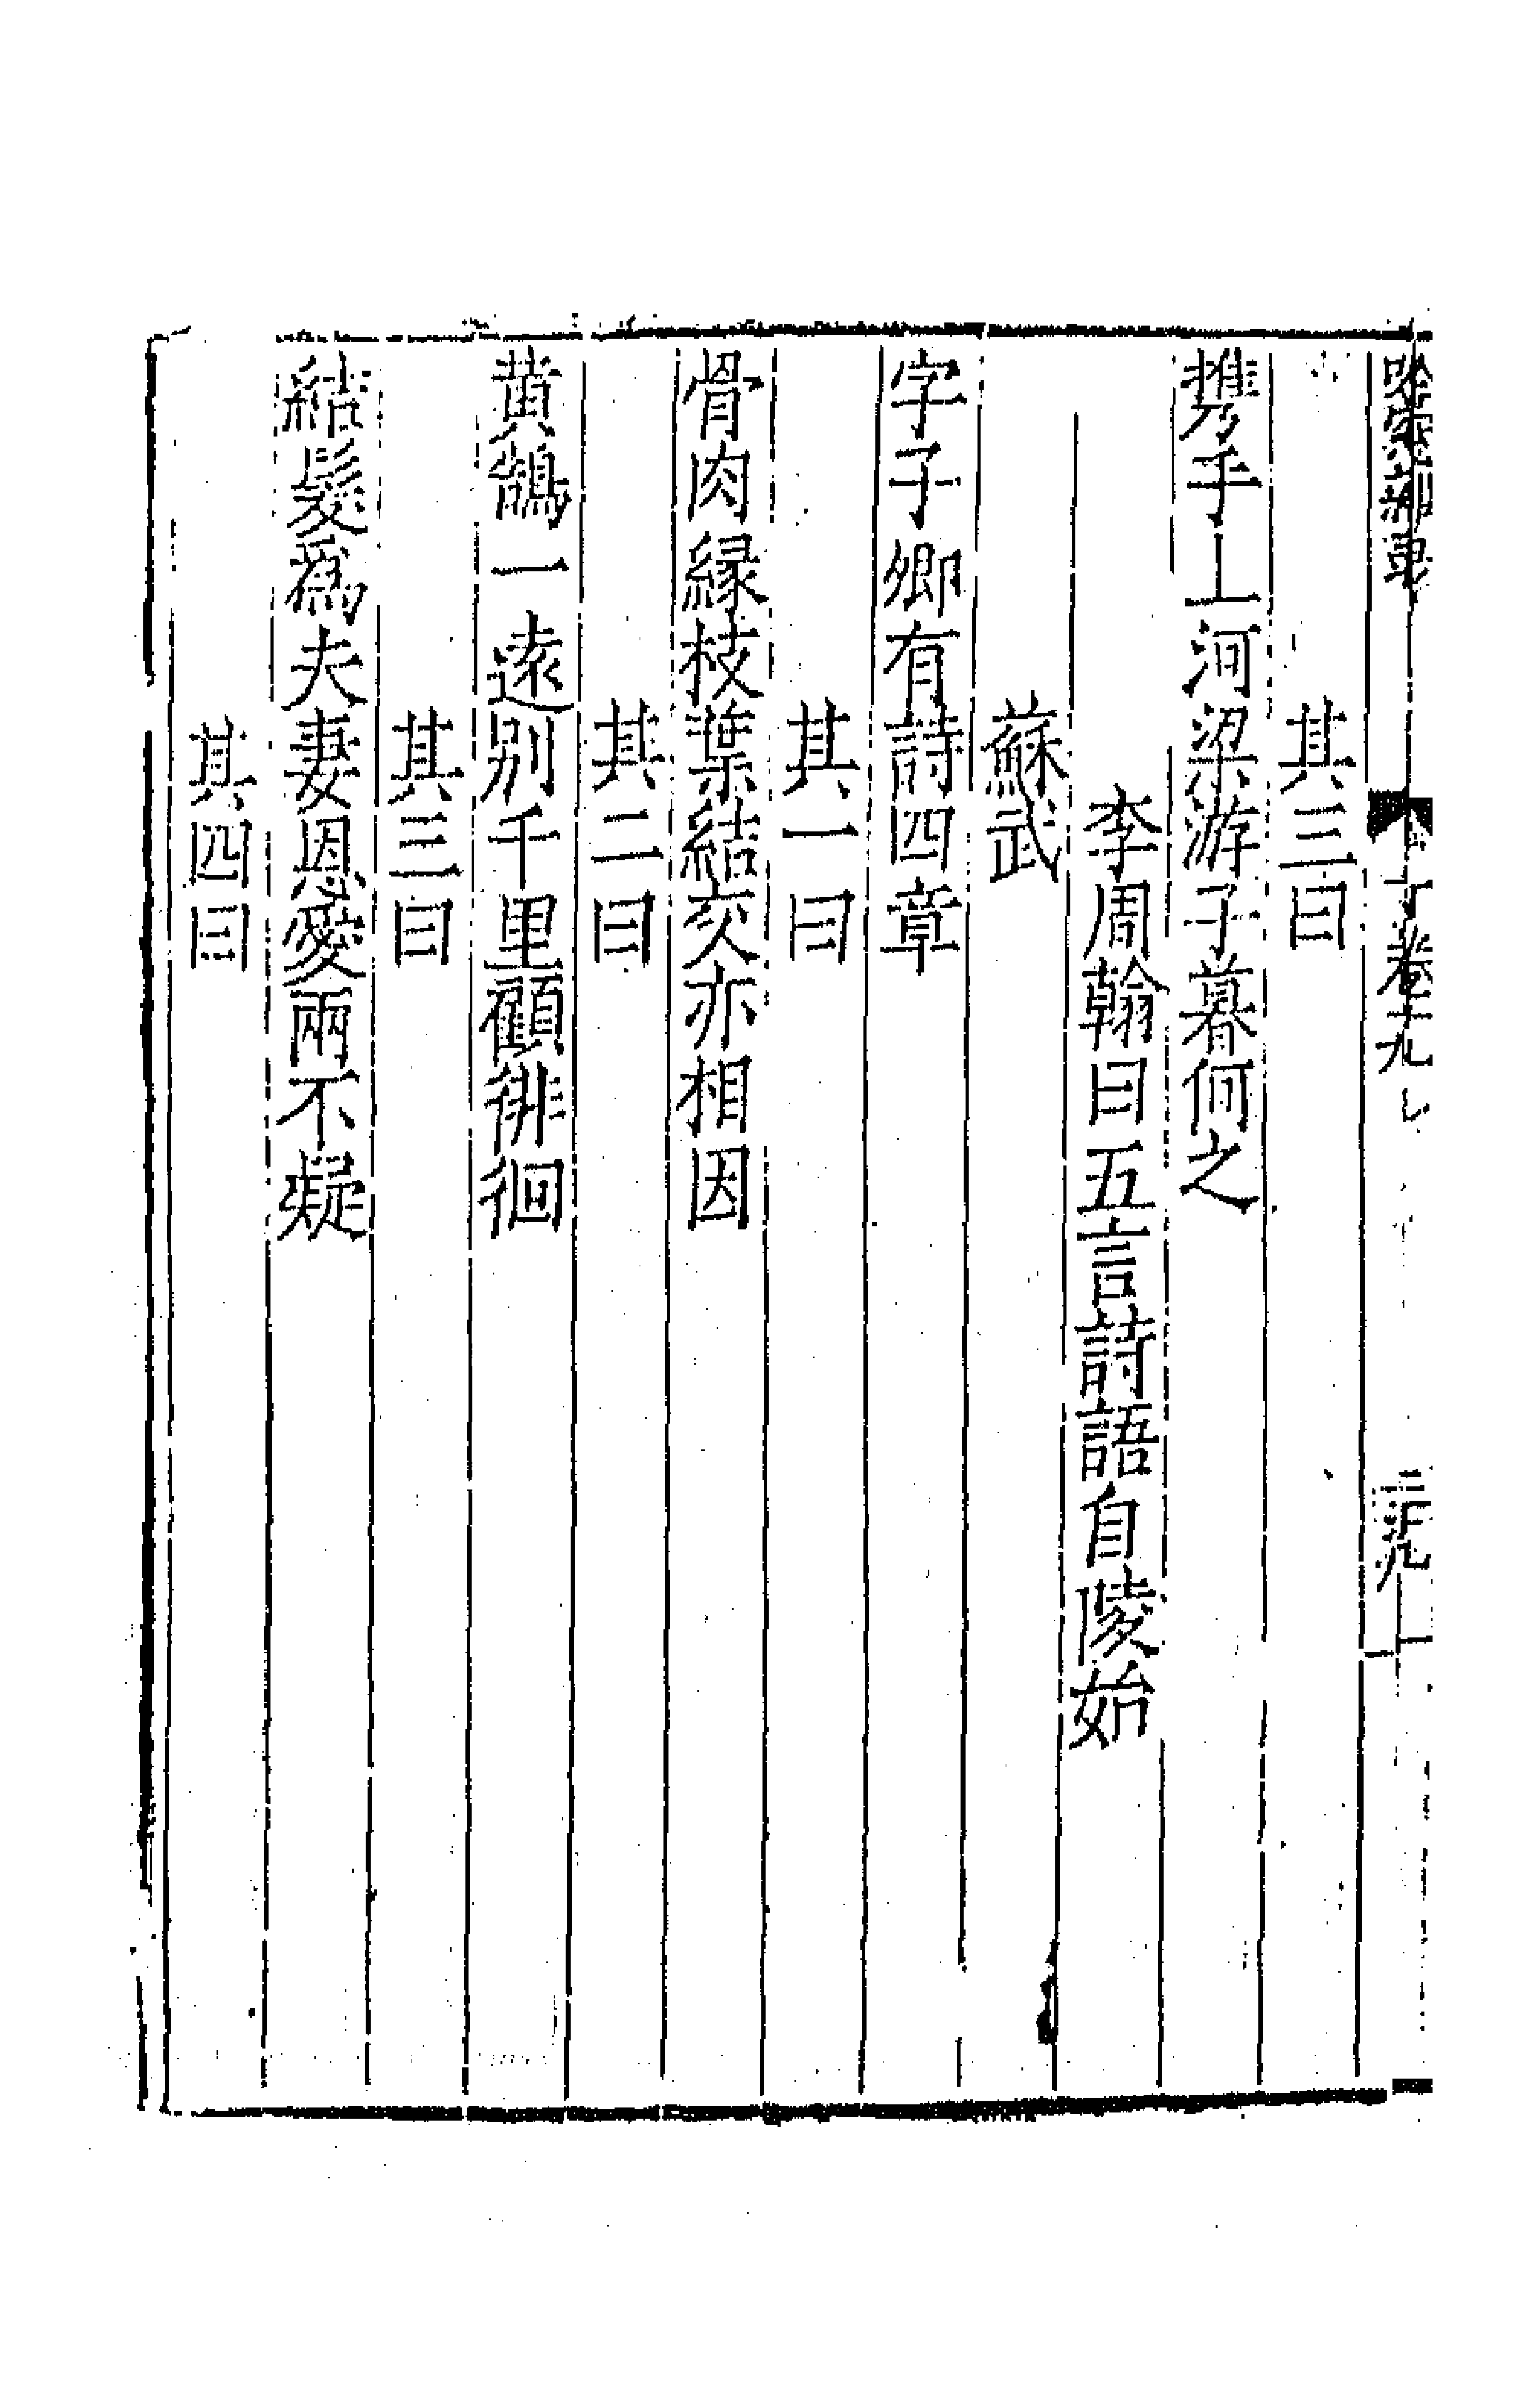 其三曰
携手上河梁游子暮何之
李周翰曰五言詩語自陵始
蘇武
字子卿有詩四章
其一曰
骨肉緣枝葉結交亦相因
其二曰
黄鵠一遠別千里顧徘徊
其三曰
結髮爲夫妻恩愛兩不疑
其四曰